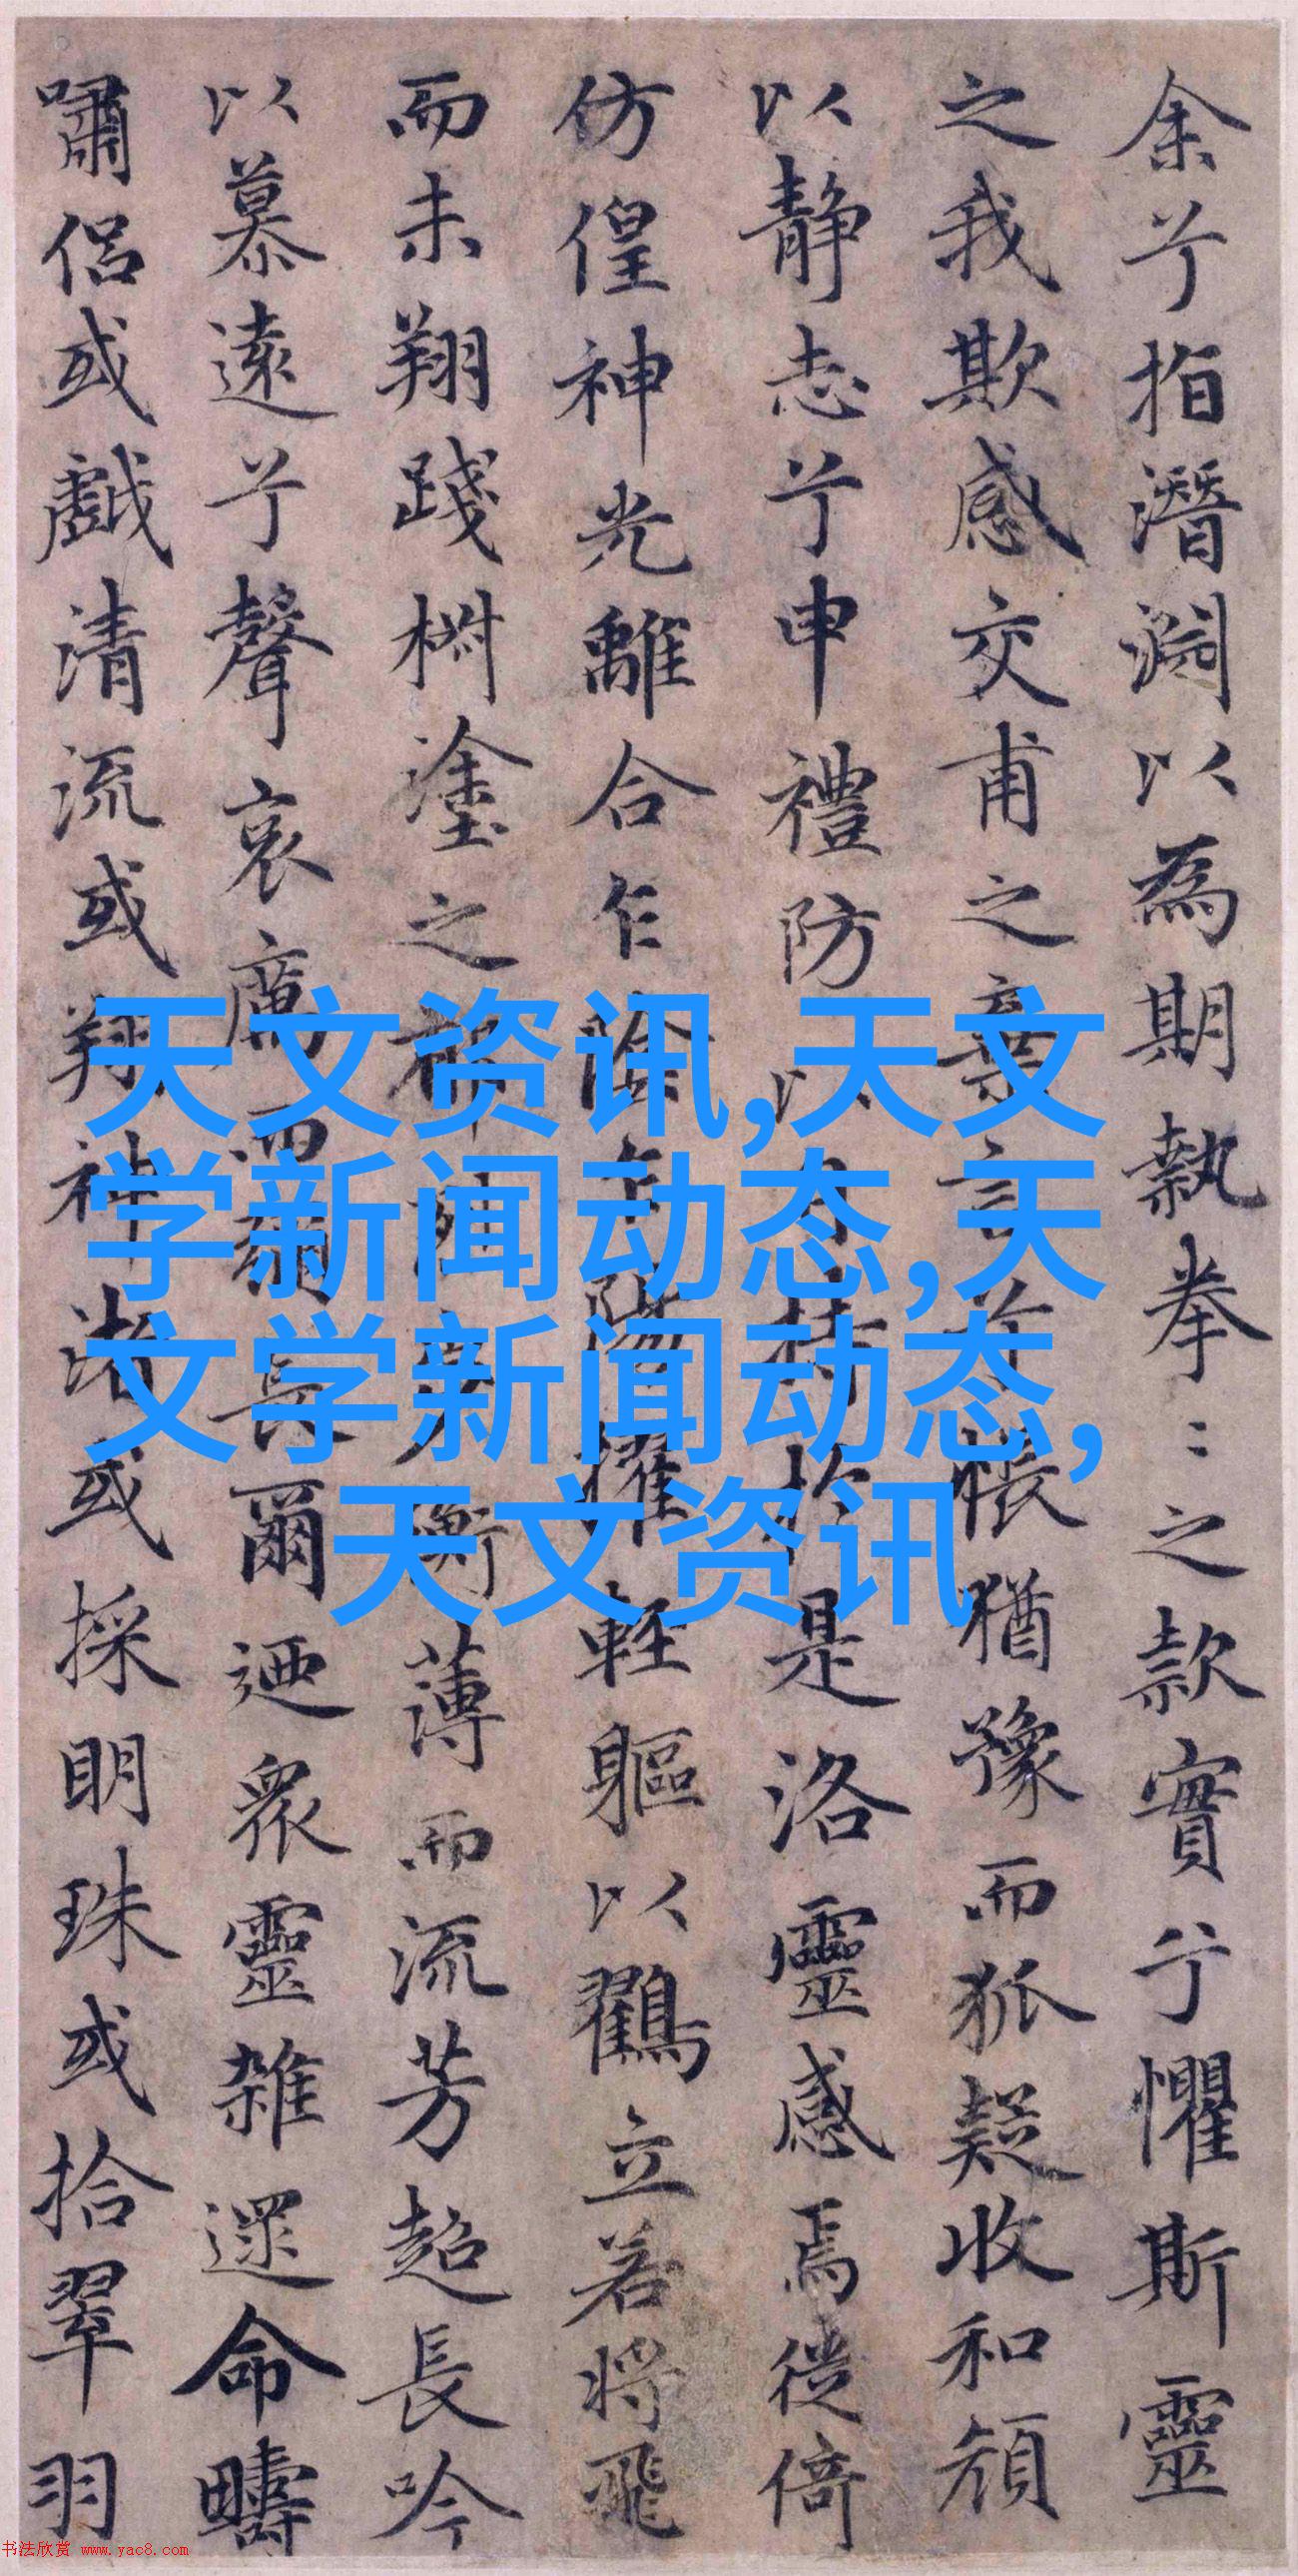 余兮指潛淵以為期執拳〻之款實兮懼斯靈
之我欺感交甫之棄言兮悵猶豫而狐疑收和顏
以靜志兮申禮防以自持於是洛靈感焉徙倚
仿偟神光離合乍陰乍陽擢輕軀以鶴立若將飛
而未翔踐椒塗之郁烈步衡薄而流芳超長吟
以慕遠兮聲哀厲而彌長爾迺衆靈雜遝命疇
嘯侶或戲清流或翔神渚或採明珠或拾翠羽
天文资讯,天文
学新闻动态,天
文学新闻动态,
天文资讯
书法欣赏 www.yac8.com